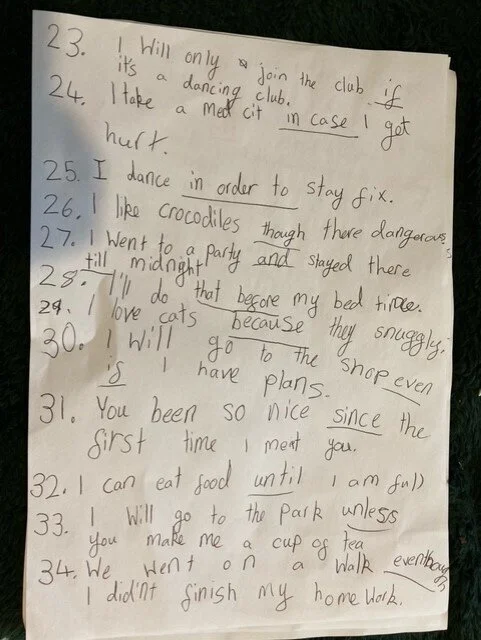 23. I Will only join the club if
it's a dancing club.
24. I take a med cit in case I get
hurt.
25. I dance in order to stay fix.
26. I like crocodiles though there dangerous
27. I Went to a party and stayed there
till midnight
28. I'll do that before my bed time.
29. I love cats because they snuggly.
30. I Will go to the shop even
if I have plans.
31. You been so nice since the
first time I meat you.
32. I can eat food until I am full
33. I Will go to the park unless
you make me a cup of tea
34. We went on a walk eventhough
I did'nt finish my home Work.